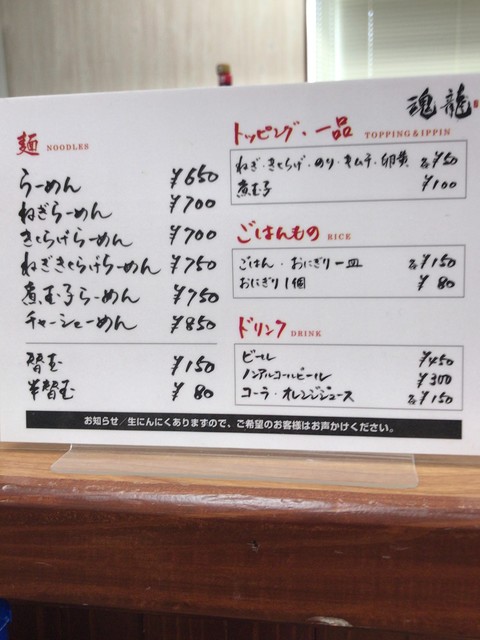 魂龍
麺 NOODLES
らーめん ¥650
ねぎらーめん ¥700
きくらげらーめん ¥700
ねぎきくらげらーめん ¥750
煮玉子らーめん ¥750
チャーシューめん ¥850
替玉 ¥150
半替玉 ¥80
トッピング・一品 TOPPING&IPPIN
ねぎ・きくらげ・のり・キムチ・卵黄 各¥50
煮玉子 ¥100
ごはんもの RICE
ごはん・おにぎり一皿 各¥150
おにぎり1個 ¥80
ドリンク DRINK
ビール ¥450
ノンアルコールビール ¥300
コーラ・オレンジジュース 各¥150
お知らせ/生にんにくありますので、ご希望のお客様はお声かけください。